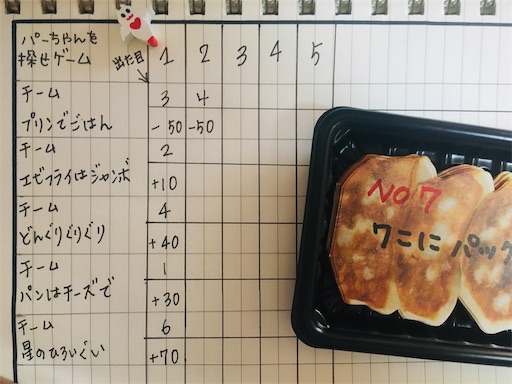 パーちゃんを
探せゲーム
出た目
1 2 3 4 5
チーム 3 4
プリンでごはん -50 -50
チーム 2
エビフライはジャンボ +10
チーム 4
どんぐりぐりぐり +40
チーム 1
パンはチーズで +30
チーム 6
星のひろいぐい +70
NO7
7こにパック